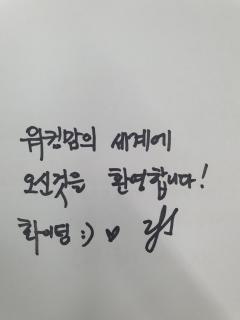 워킹맘의 세계에
오신것을 환영합니다!
화이팅 :) ♥